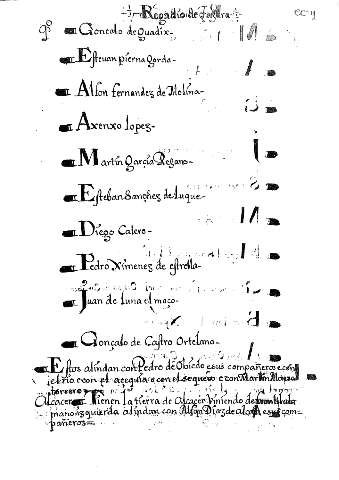 Regadio de
Goncalo de Guadix-
Esteuan pierna gorda-
Alfon fernandes de Molina-
Axenxo lopez-
Martin Garçia Regano-
Esteban Sanches de Luque-
Diego Calero-
Pedro Ximenes de estrella
Juan de Luna el moço-
Gonçalo de Castro Ortelano-
Estos alindan con Pedro de Obiedo e sus compañeros e con
el rio e con el açequia e con el sequero e con Martin Alonso
Alcacer Tienen la tierra de Alcaçer Viniendo de
mano isquierda alindan con Alfon Dias de e sus com-
pañeros-